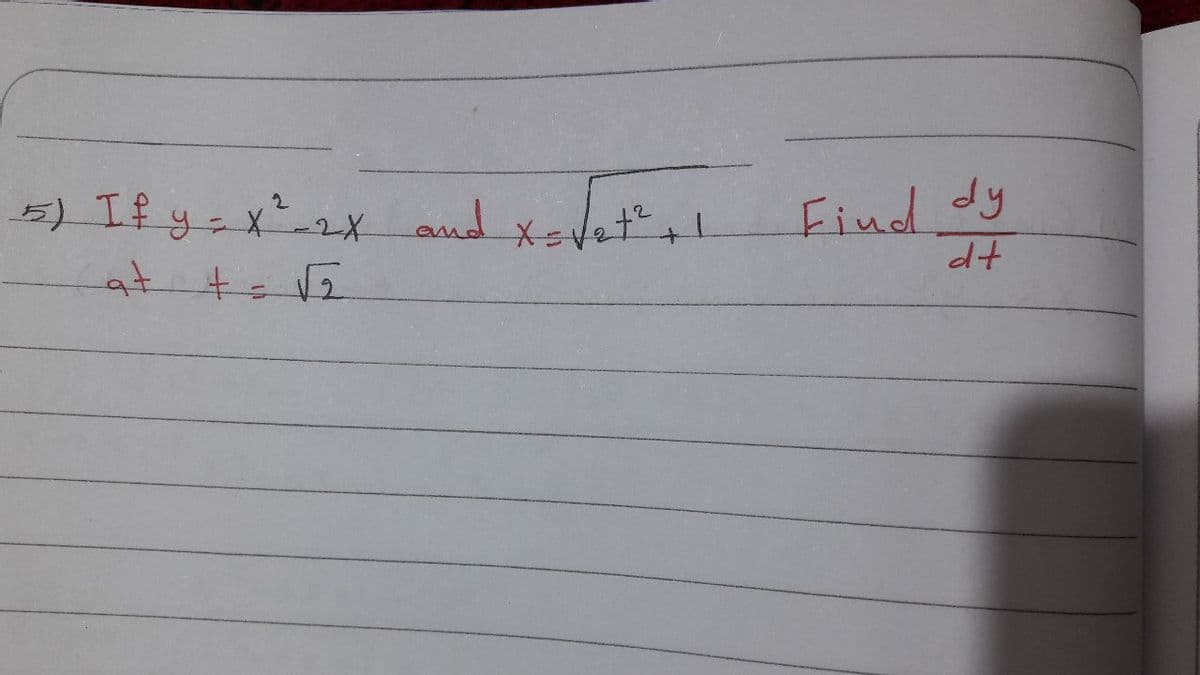 5) If y = x² - 2x and x = √(2t² + 1) Find dy/dt
at t = √2